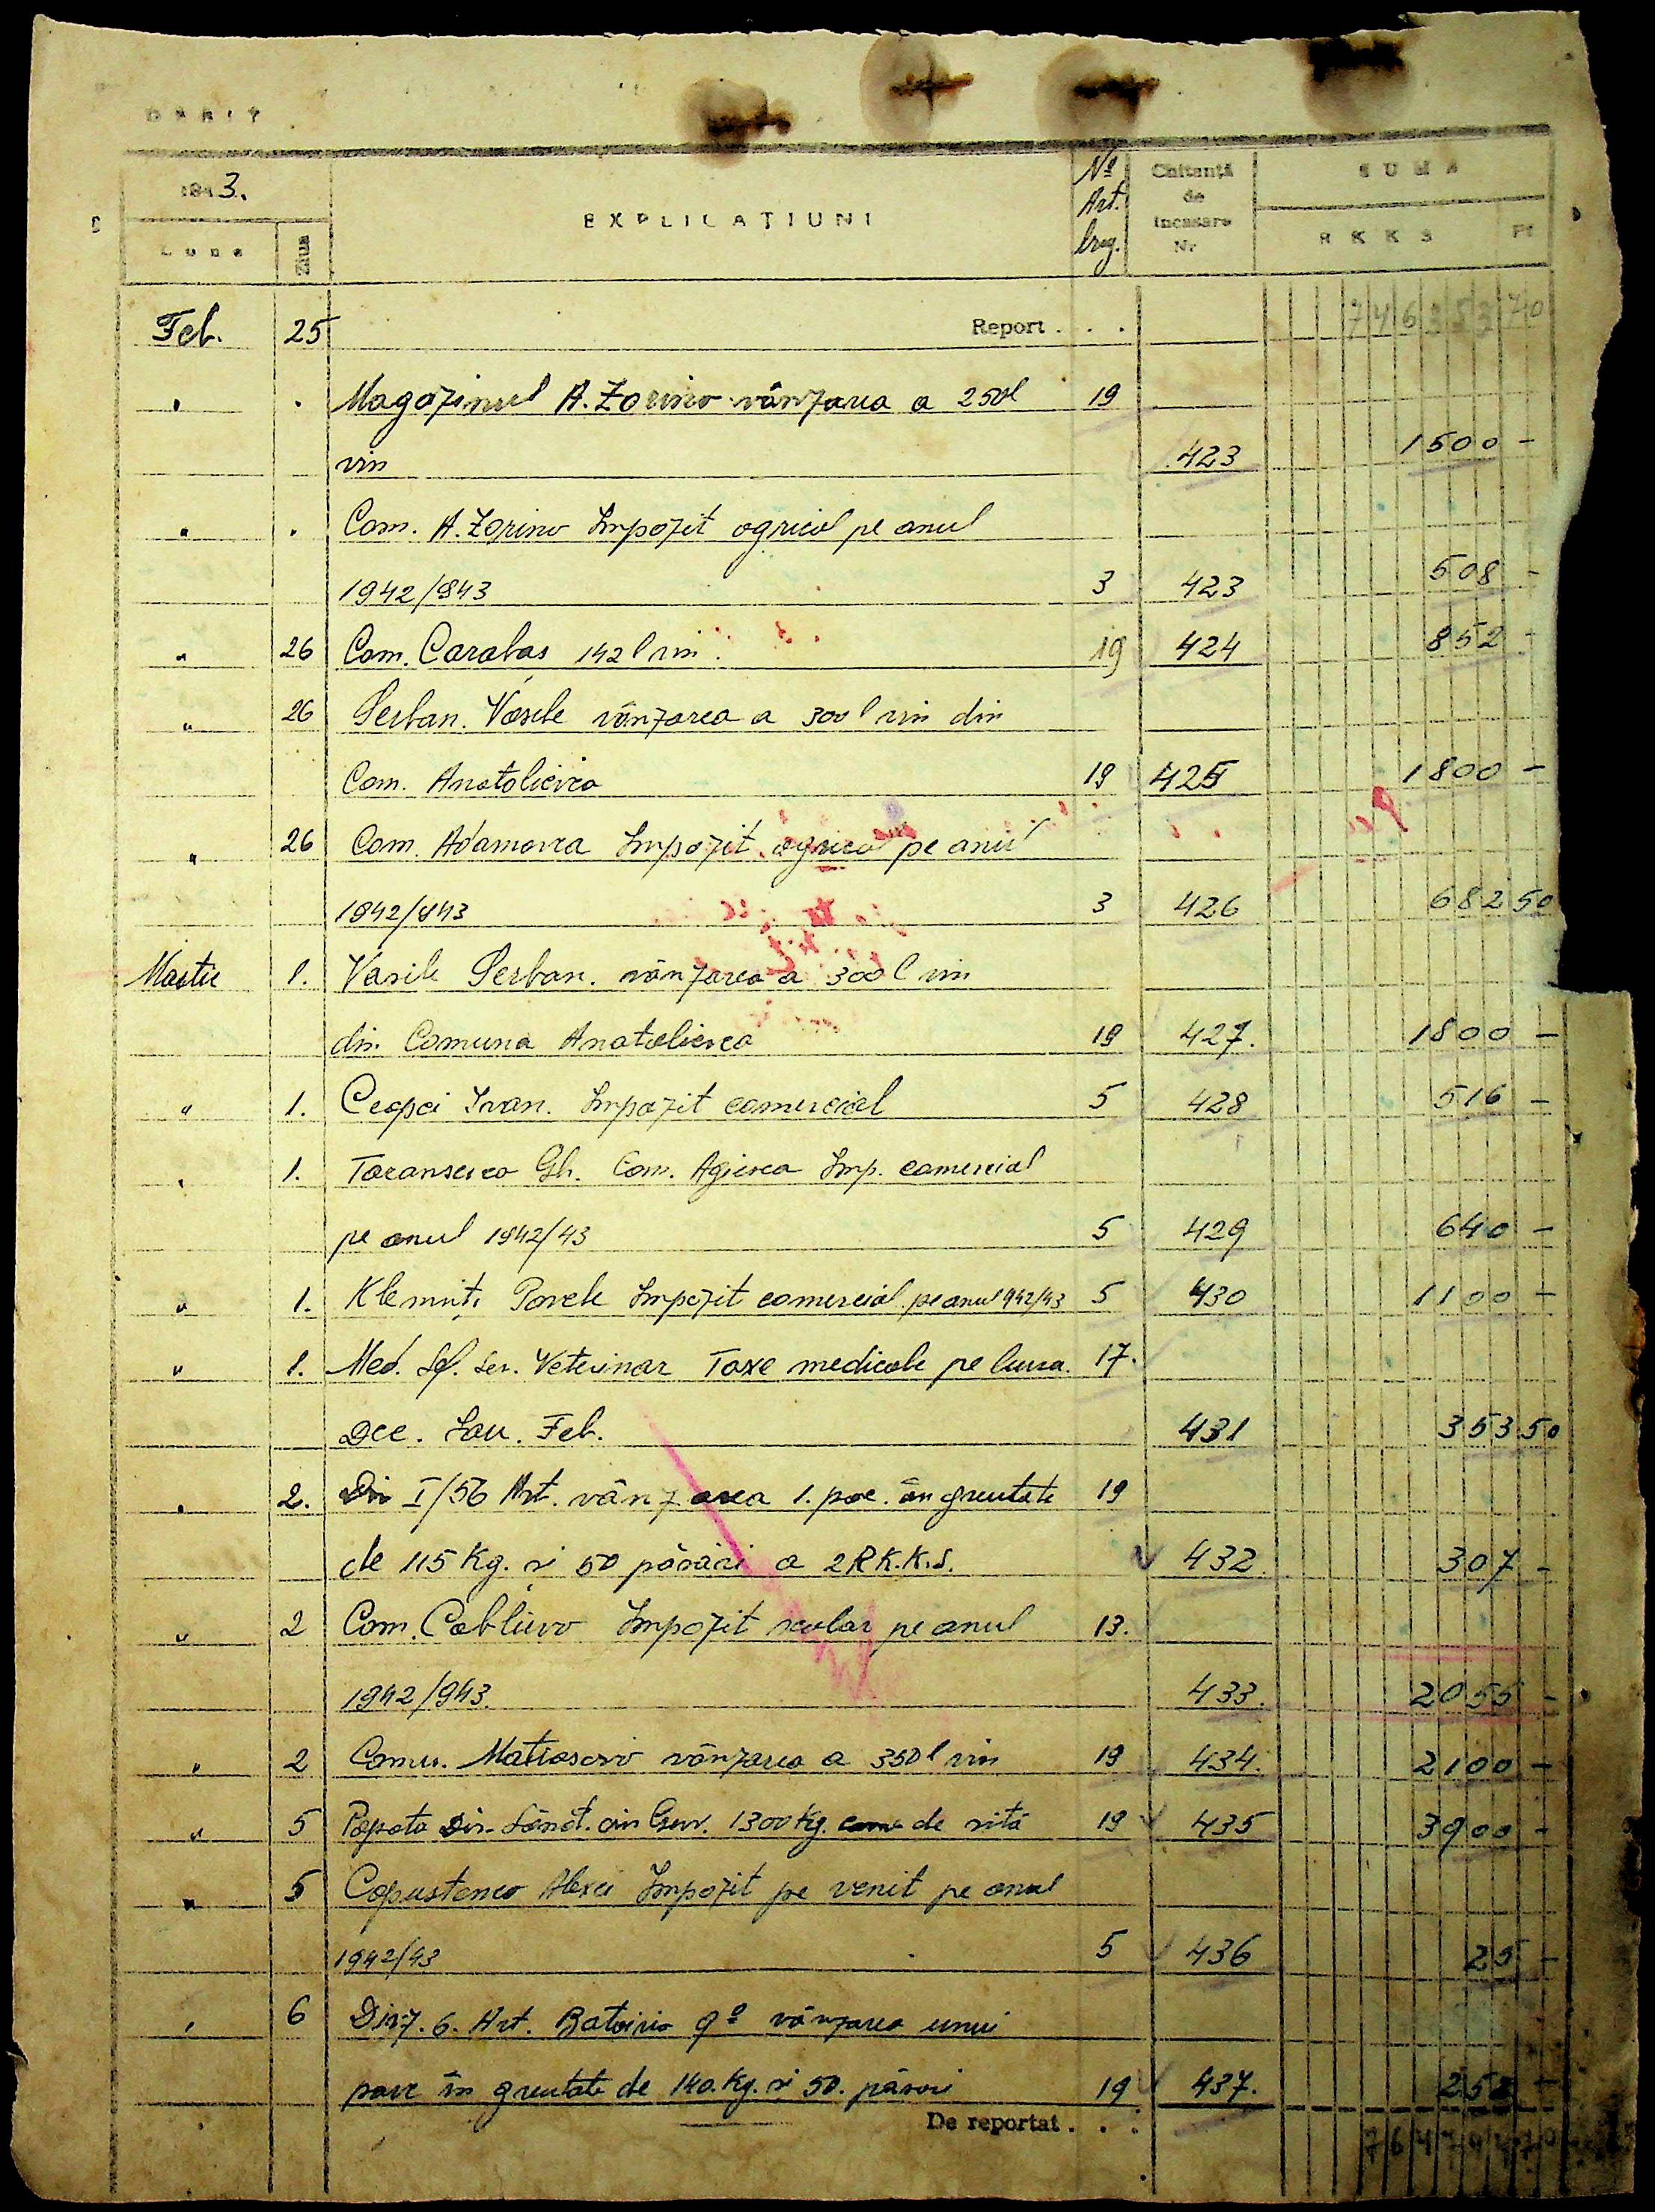 DEBIT
1943.
Luna
Ziua
EXPLICAȚIUNI
No Art. breg.
Chitanță de încasare Nr.
SUMA
RKKS Pf
Feb. 25 Report . . . 746353 70
" " Magazinul A. Zorino vânzarea a 250l 19
vin 423 1500 -
" " Com. A. Zorino Impozit agricol pe anul
1942/943 3 423 508 -
" 26 Com. Carabas 142 l vin 19 424 852 -
" 26 Serban Vasile vânzarea a 300 l vin din
Com. Anatolievca 19 425 1800 -
" 26 Com. Adamovca Impozit agricol pe anul
1942/943 3 426 682 50
Martie 1. Vasile Serban. vânzarea a 300 l vin
din Comuna Anatolievca 19 427. 1800 -
" 1. Ceapci Ivan. Impozit comercial 5 428 516 -
" 1. Gh. Com. Imp. comercial
pe anul 1942/43 5 429 640 -
" 1. Pavele Impozit comercial pe anul 942/43 5 430 1100 -
" 1. Med. Șef. Ser. Veterinar Taxe medicale pe luna 17.
Dec. Ian. Feb. 431 353 50
" 2. Div I/56 Art. vânzarea 1. porc. în greutate 19
de 115 Kg. și 50 părări a 2 R.K.K.S. 432 307 -
" 2 Com. Cablievo Impozit scolar pe anul 13.
1942/943. 433. 2055 -
" 2 Comu. vânzarea a 350 l vin 19 434. 2100 -
" 5 Popota Dir. Sănăt. din Guv. 1300 Kg. carne de vită 19 435 3900 -
" 5 Capustenco Alexei Impozit pe venit pe anul
1942/43 5 436 25 -
" 6 Div 7. 6. Art. Bateria 9a vânzarea unui
porc în greutate de 140. Kg. și 50. părări 19 437. 252 -
De reportat . . .